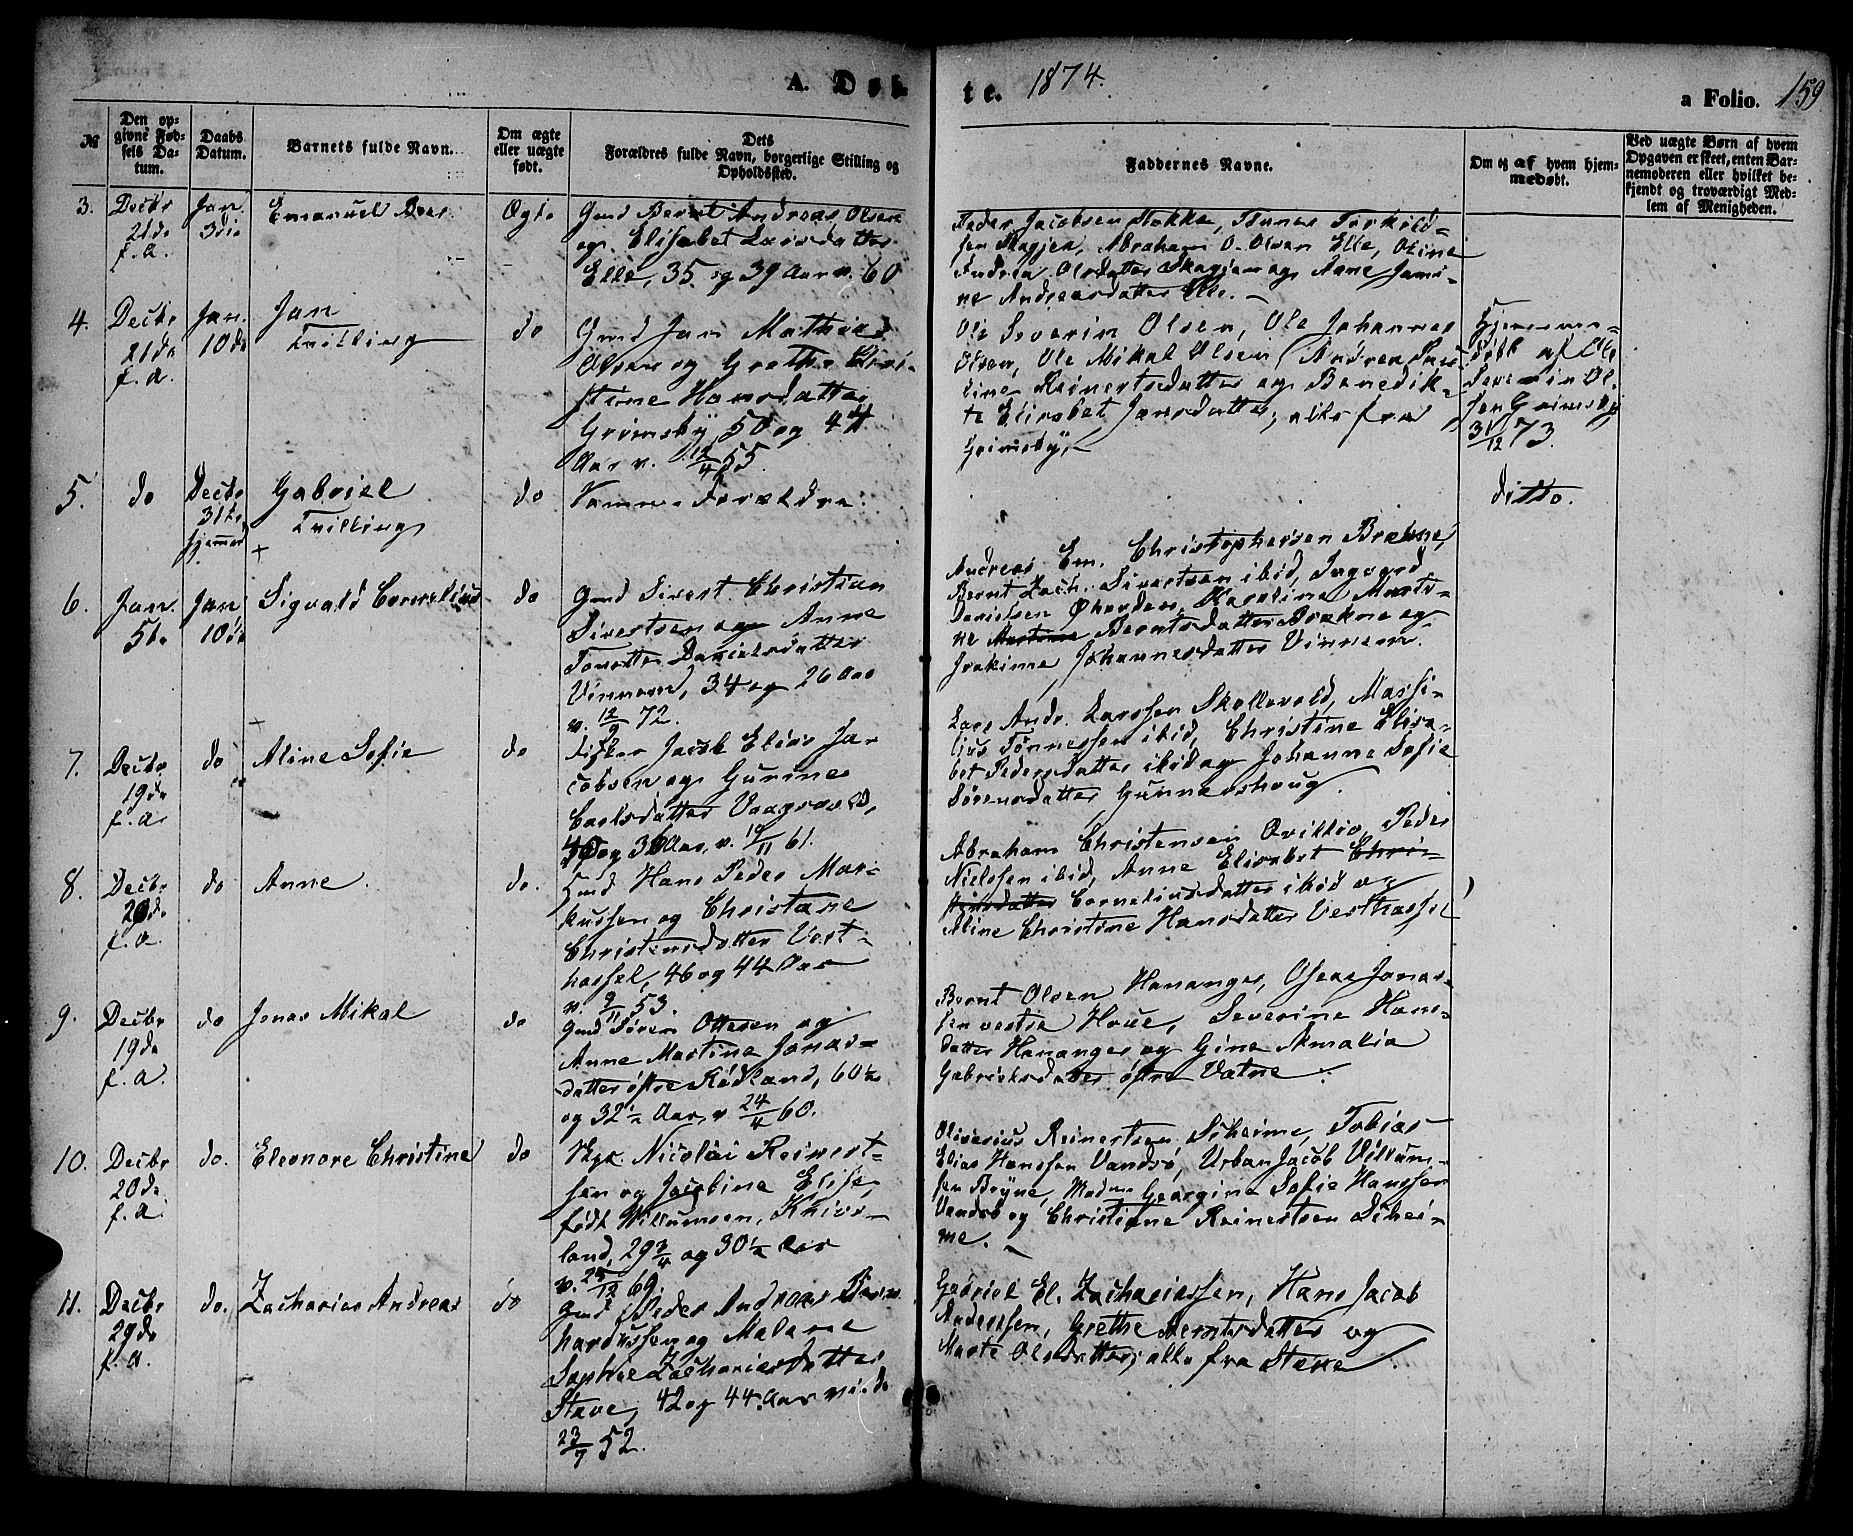 A. Døb-
te. 1874.
a Folio. 159
№
Den op-
givne Fød-
sels Da-
tum.
Daabs
Datum.
Barnets fulde Navn.
Om ægte
eller uægte
født.
Dets
Forældres fulde Navn, borgerlige Stilling og
Opholdssted.
Faddernes Navne.
Om og af hvem hjem-
medøbt.
Ved uægte Børn af hvem
Opgaven er skeet, enten Bar-
nemoderen eller hvilket be-
kjendt og troværdigt Med-
lem af Menigheden.
3.
Decbr
21de
f. a.
Jan.
3die
Emanuel
Ægte
Gmd Bernt Andreas Olsen
og Elisabet Larsdatter
Elle, 35 og 39 Aar v. 60
Peder Jacobsen Stokke, Thomas Torkild-
sen Skagjen, Abraham O. Olsen Elle, Oline
Andrea Olsdatter Skagjem og Anne Jami-
ne Andreasdatter Elle.
4.
Decbr
21de
f. a.
Jan.
10de
Jan
Tvilling
do
Gmd Jan Mathias
Olsen og Grethe Chri-
stine Hansdatter
Grimsby, 50 og 44
Aar v. 12/4 55.
Ole Severin Olsen, Ole Johannes
Olsen, Ole Mikal Olsen, Andrea Pau-
line Reinertsdatter og Benedik-
te Elisabet Jansdatter, alle fra
Grimsby.
Hjemme-
døbt af Ole
Severin Ol-
sen Grimsby
31/12 73.
5.
do
Decbr
31te
hjemmed.
Gabriel
Tvilling
do
Samme Forældre.
ditto.
6.
Jan.
5te
Jan
10de
Sigvald Cornelius
do
Gmd Sivert Christian
Sivertsen og Anne
Tonette Danielsdatter
Vinnem, 34 og 26 Aar
v. 12/9 72.
Andreas Em. Christophersen Brækne,
Bernt Zach. Sivertsen ibid, Ingvard
Danielsen Ørevden, Karoline Marti-
ne Martine Berntsdatter Brækne og
Joakime Johannesdatter Vinnem.
7.
Decbr
19de
f. a.
do
Aline Sofie
do
Fisker Jacob Elias Ja-
cobsen og Gurine
Carlsdatter Vaagsvold,
40 og 36 Aar, v. 10/11 61.
Lars Andr. Larssen Skollevold, Massi-
lius Tønnessen ibid, Christine Elisa-
bet Pedersdatter ibid og Johanne Sofie
Sørensdatter Gunnershoug.
8.
Decbr
20de
f. a.
do
Anne
do.
Gmd Hans Peder Mar-
kussen og Christane
Christensdatter Vest-
hassel, 46 og 44 Aar
v. 9/11 53.
Abraham Christensen Qviltjø, Peder
Nielssen ibid, Anne Elisabet Chri-
stensdatter Corneliusdatter ibid og
Aline Christine Hansdatter Vesthassel
9.
Decbr
19de
f. a.
do
Jonas Mikal
do
Gmd Søren Ottesen og
Anne Martine Jonas-
datter østre Rødland, 60½
og 32½ Aar, v 24/4 60.
Bernt Olsen Hananger, Oseas Jonas-
sen vestre Houe, Severine Hans-
datter Hananger og Gine Amalia
Gabrielsdatter østre Vatne.
10.
Decbr
20de
f. a.
do.
Eleonore Christine
do
Nicolai Reinert-
sen og Jacobine Elise,
født Willumsen, Knivs-
land, 29¾ og 30½ Aar
v. 25/12 69.
Oliverius Reinertsen Skeime, Tobias
Elias Hanssen Vandsø, Urban Jacob Villum-
sen Bryne, Madme Georgine Sofie Hanssen
Vandsø og Christiane Reinertsen Skei-
me.
11.
Decbr
29de
f. a.
do.
Zacharias Andreas
do
Gmd Peder Andreas Bern-
hardussen og Malene
Sophie Zachariasdatter
Stave, 42 og 44 Aar viede
23/7 52.
Gabriel El. Zachariassen, Hans Jacob
Anderssen, Grethe Berntsdatter og
Marte Olsdatter, alle fra Stave.